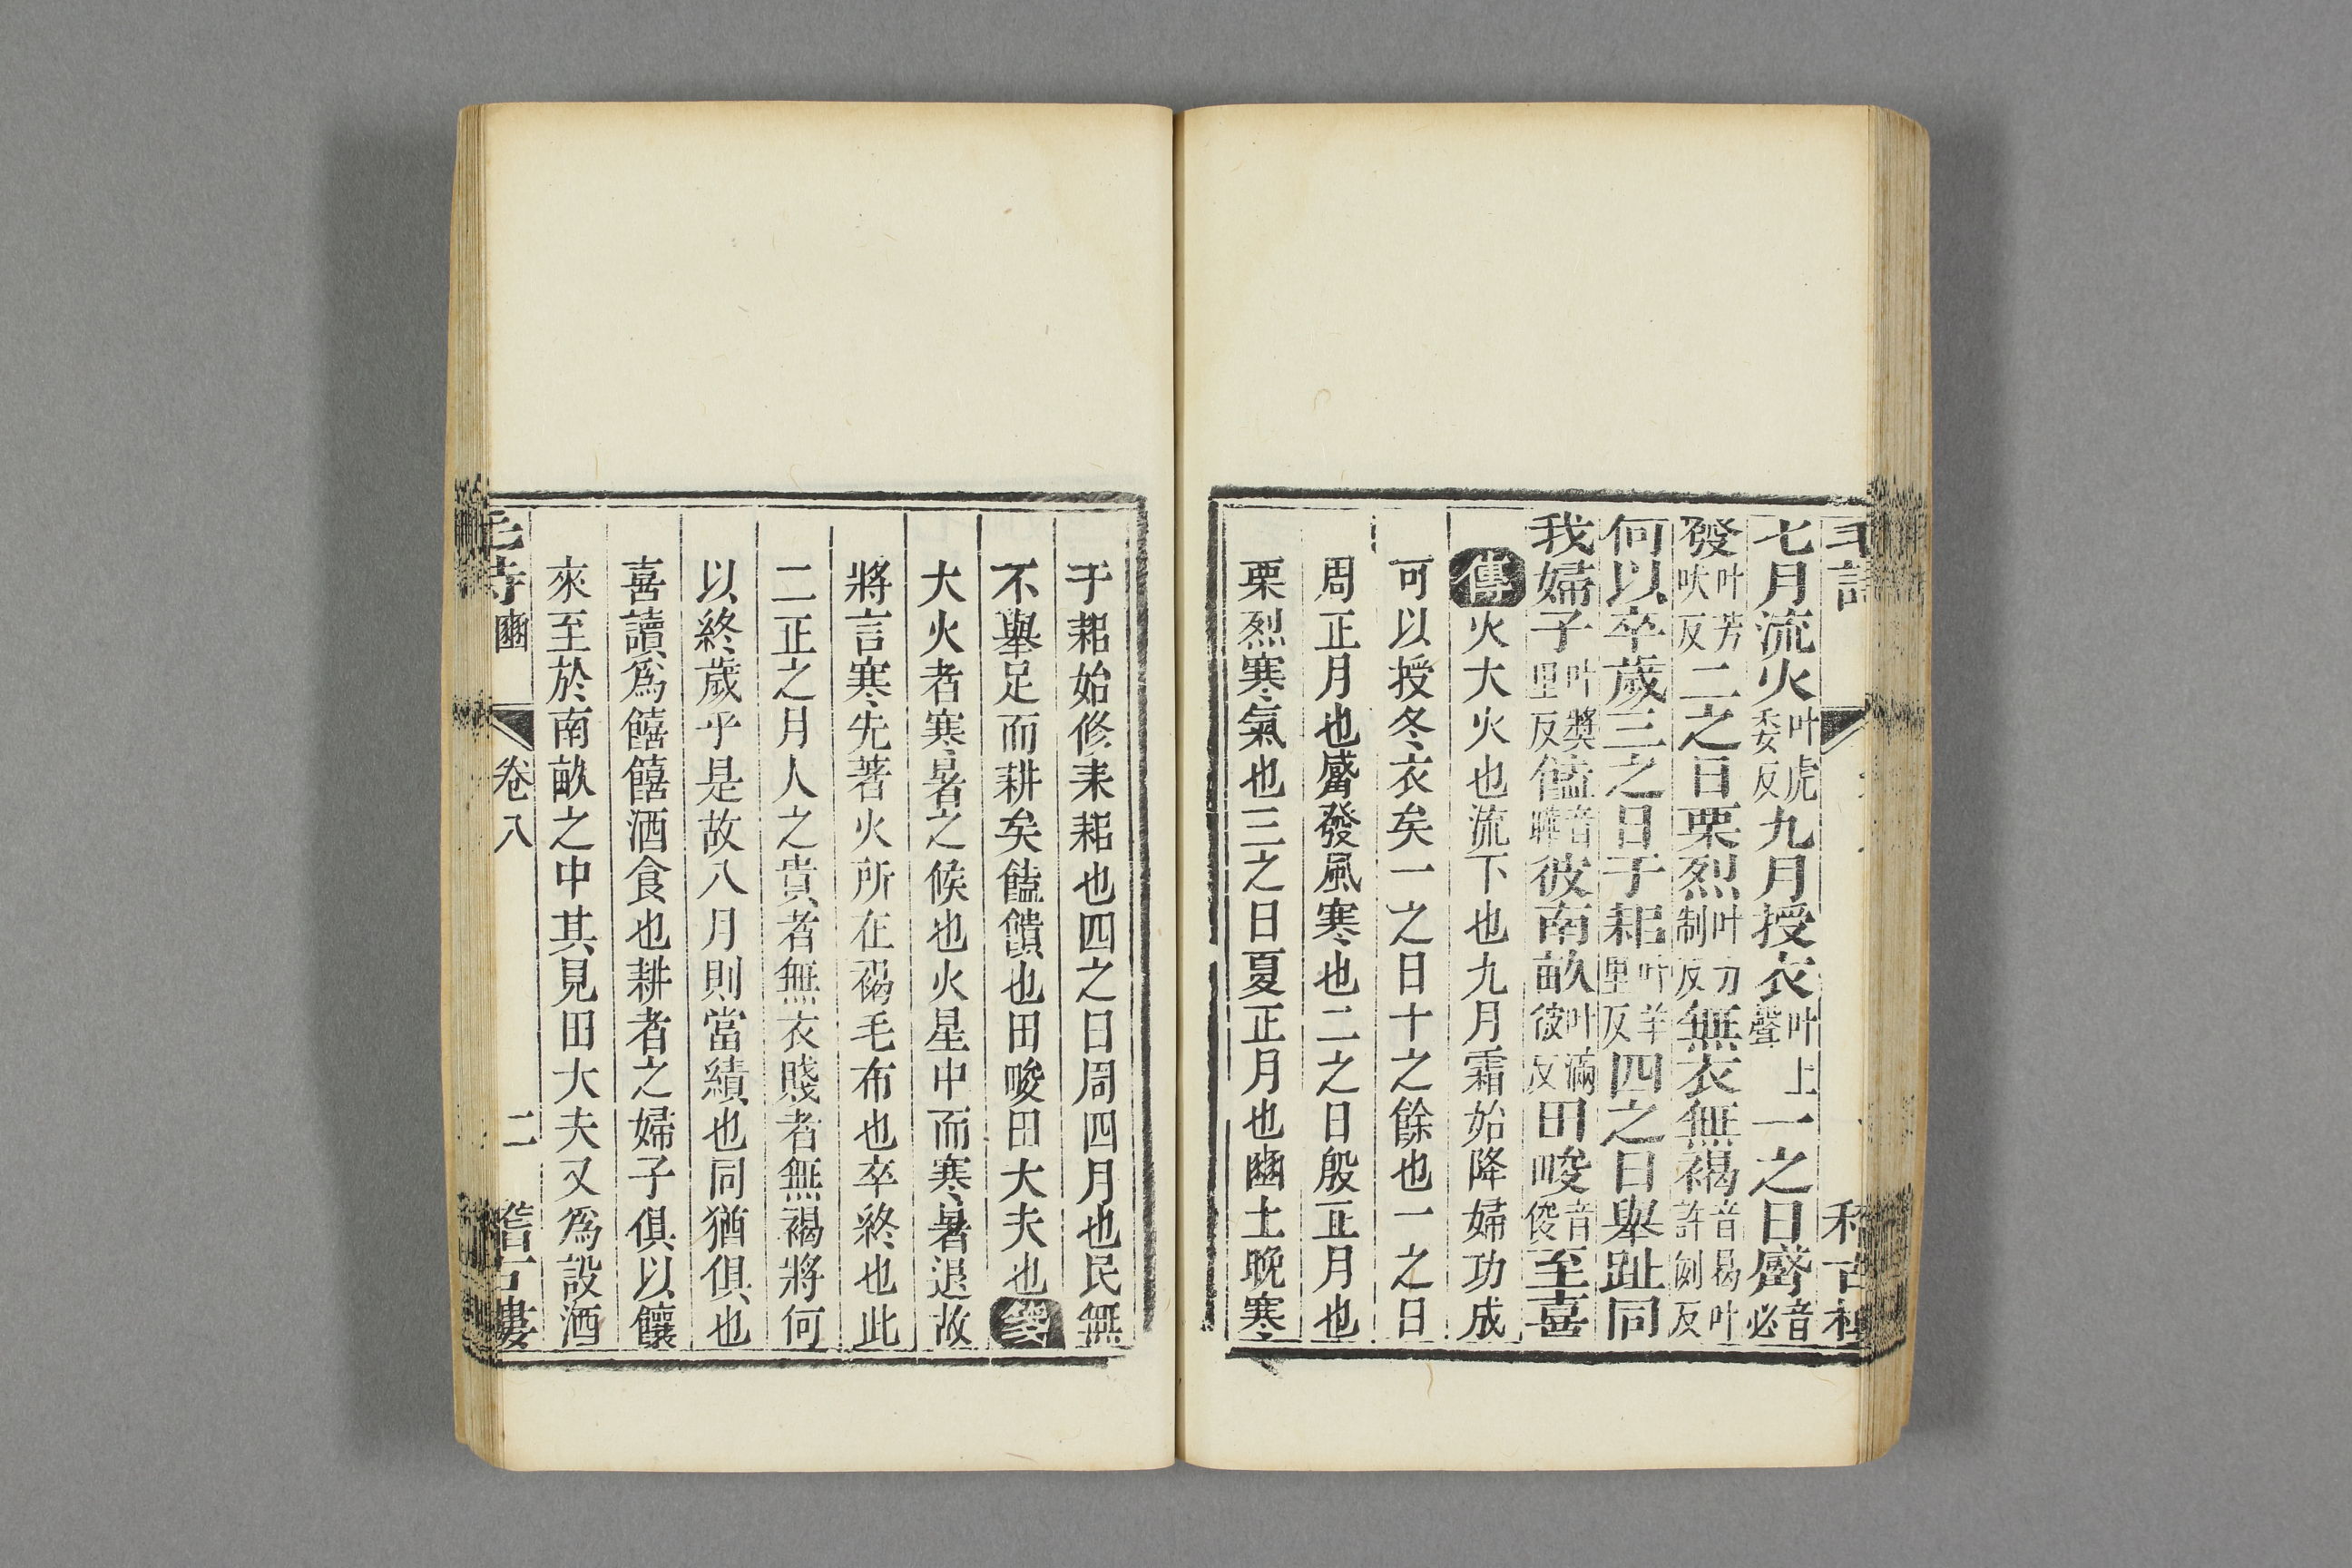 毛詩
七月流火叶虎委反九月授衣叶上聲一之日觱音必
發叶芳吠反二之日栗烈叶力制反無衣無褐音曷叶許例反
何以卒歲三之日于耜叶羊里反四之日舉趾同
我婦子叶奬里反饁音曄彼南畝叶滿彼反田畯音俊至喜
傳火大火也流下也九月霜始降婦功成
可以授冬衣矣一之日十之餘也一之日
周正月也觱發風寒也二之日殷正月也
栗烈寒氣也三之日夏正月也豳土晚寒
于耜始修耒耜也四之日周四月也民無
不舉足而耕矣饁饋也田畯田大夫也箋
大火者寒暑之候也火星中而寒暑退故
將言寒先著火所在褐毛布也卒終也此
二正之月人之貴者無衣賤者無褐將何
以終歲乎是故八月則當績也同猶俱也
喜讀為饎饎酒食也耕者之婦子俱以饟
來至於南畝之中其見田大夫又為設酒
毛詩豳 卷八 二 稽古樓